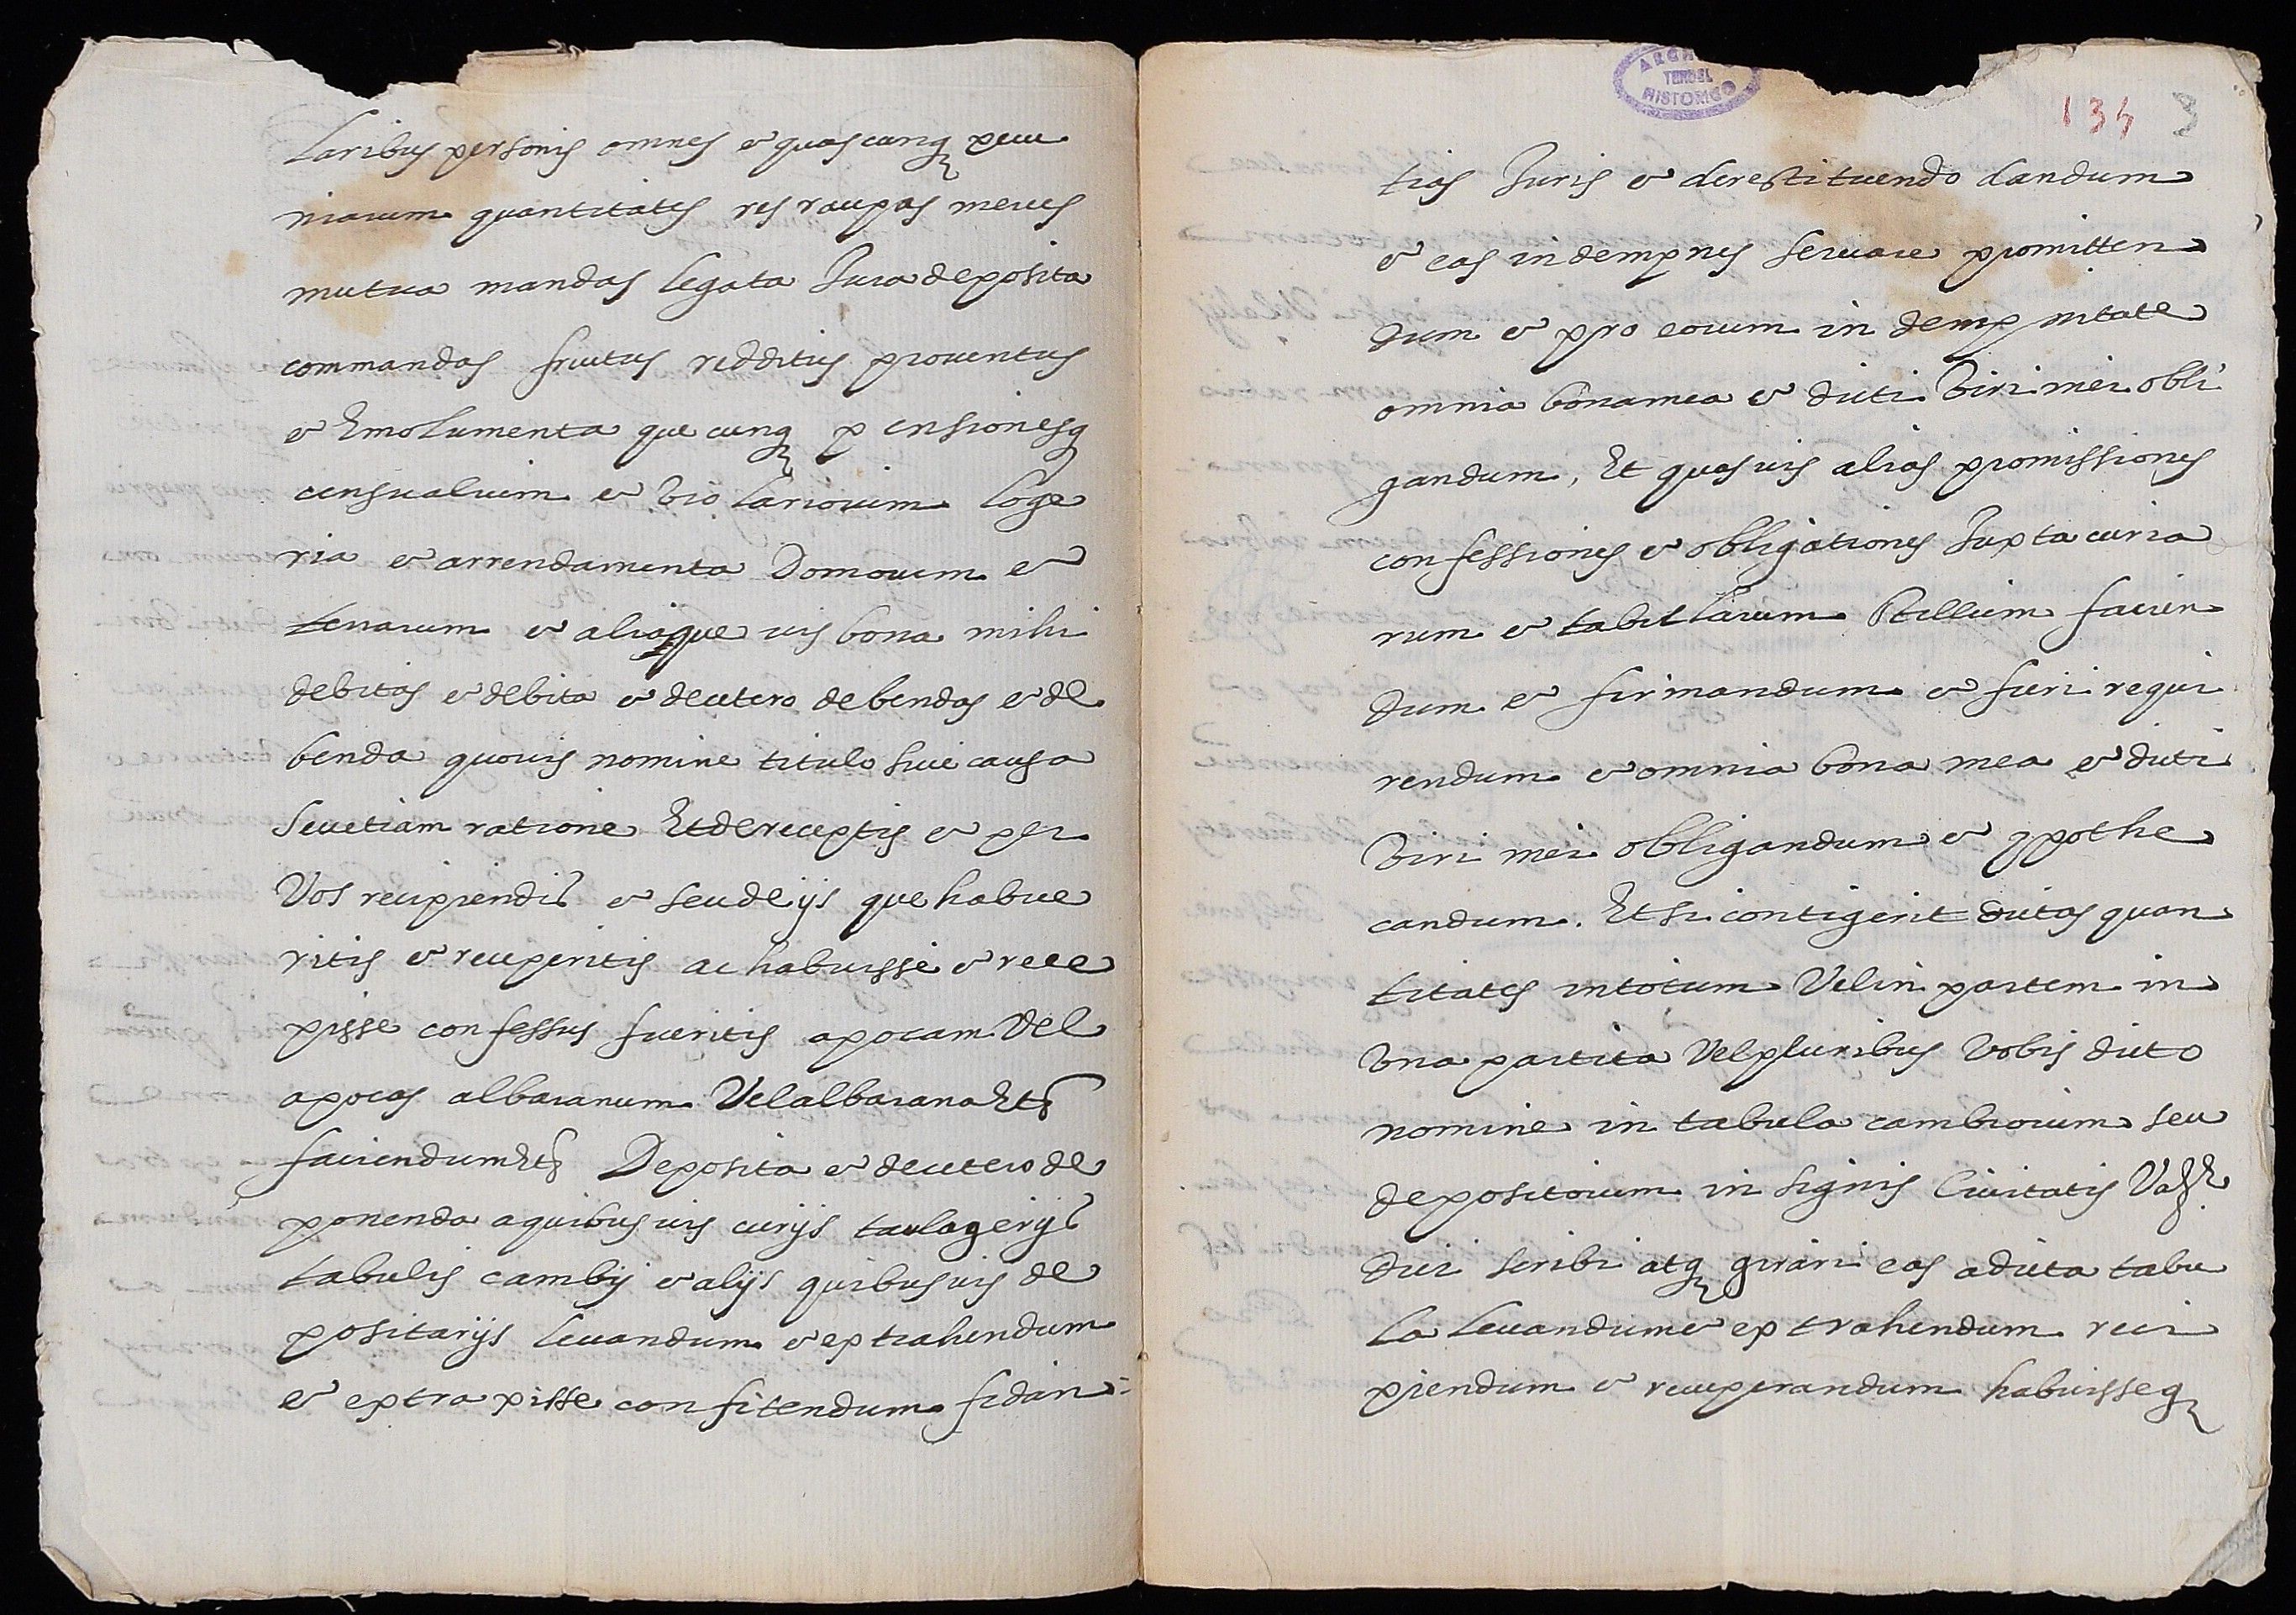 laribus personis omnes et quascunq pecu
niarum quantitates res raupas merces
mutua mandas legata Jura deposita
commandas fructus redditus prouentus
et Emolumenta quecunq pensionesq
censualium et violariorum loge
ria et arrendamenta Domorum et
terrarum et aliaque uis bona mihi
debitas et debita et decetero debendas et de
benda quouis nomine titulo siue causa
seu etiam ratione Et de receptis et per
Vos recipiendis et seu de ijs que habue
ritis et receperitis ac habuisse et rece
pisse confessus fueritis apocam vel
apocas albaranum Vel albarana Etc
faciendum Etc Deposita et decetero de
ponenda a quibusuis curijs taulagerijs
tabulis cambij et alijs quibusuis de
positarijs leuandum et extrahendum
et extraxisse confitendum fidan
ARCHIVO
TERUEL
HISTORICO
134 3
tias Juris et de restituendo dandum
et eas indempnes seruare promitten
dum et pro eorum indempnitate
omnia bona mea et dicti Viri mei obli
gandum, Et quasuis alias promissiones
confessiones et obligationes Juxta curia
rum et tabullarum stillum facien
dum et firmandum et fieri requi
rendum et omnia bona mea et dicti
Viri mei obligandum et ypothe
candum. Et si contigerit dictas quan
titates in totum Vel in partem in
Vna partita Vel pluribus Vobis dicto
nomine in tabula cambiorum seu
depositorum insignis Ciuitatis Val.e
dici scribi atq girari eas a dicta tabu
la leuandum et extrahendum reci
piendum et recuperandum habuisseq